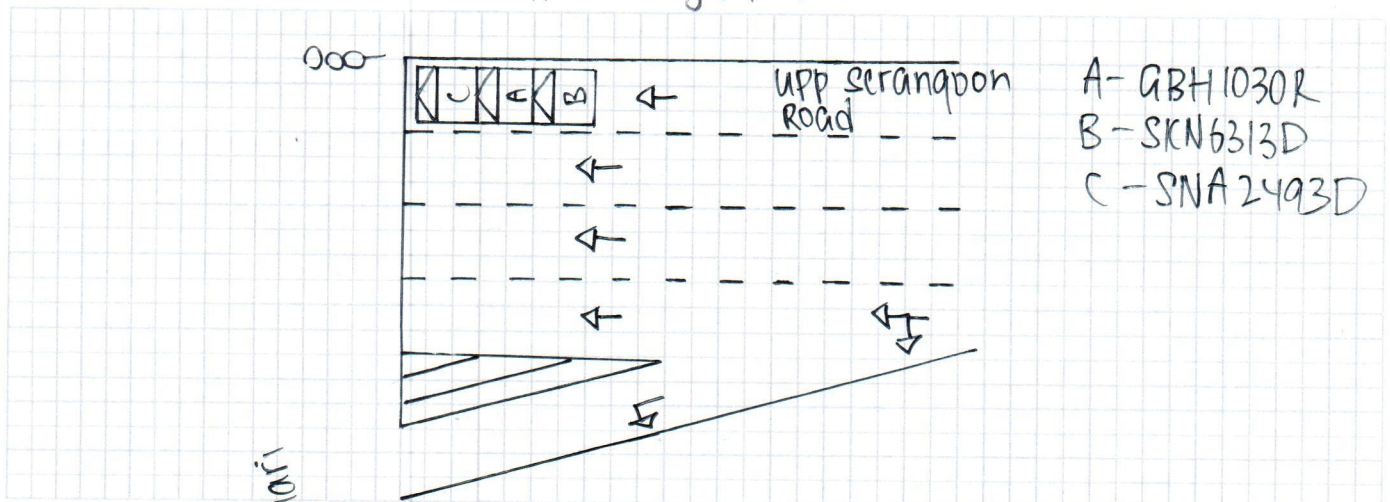 UPP Serangoon
Road
A - GBH1030R
B - SKN6313D
C - SNA2493D
C A B